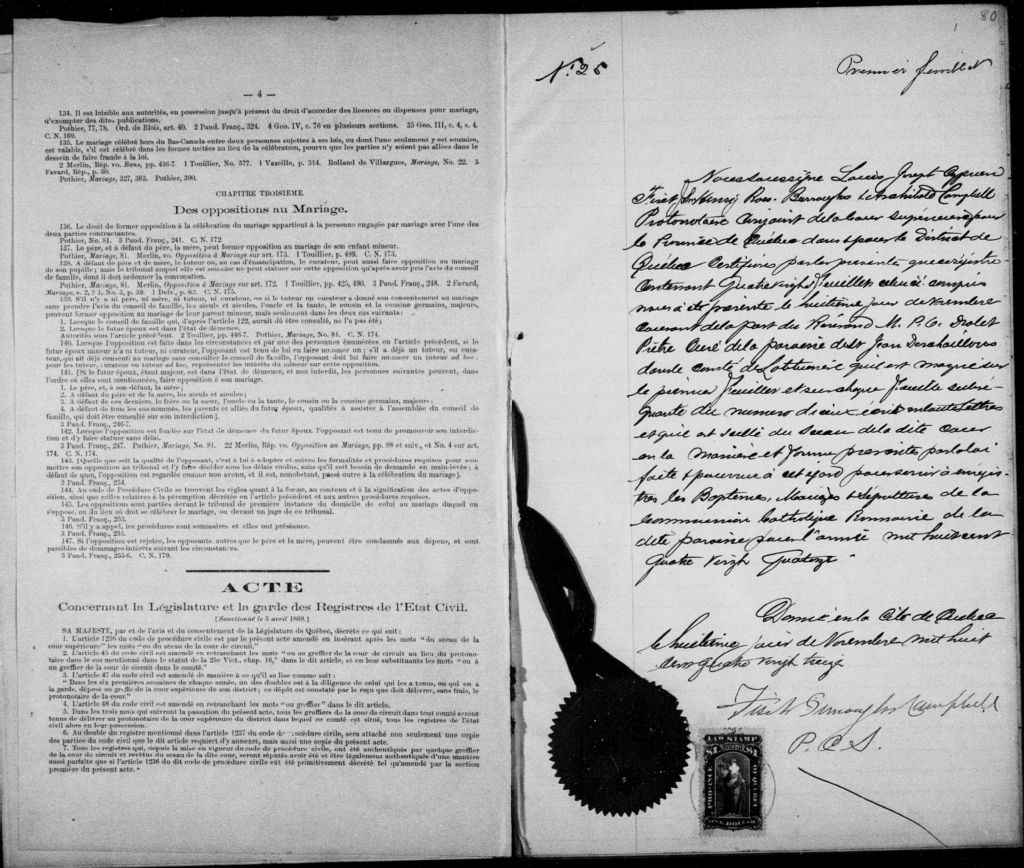 — 4 —
134. Il est loisible aux autorités, en possession jusqu'à présent du droit d'accorder des licences ou dispenses pour mariage,
d'exempter des dites publications.
Pothier, 77, 78. Ord. de Blois, art. 40. 2 Pand. Franç., 324. 4 Geo. IV, c. 76 en plusieurs sections. 35 Geo. III, c. 4, s. 4.
C. N. 169.
135. Le mariage célébré hors du Bas-Canada entre deux personnes sujettes à ses lois, ou dont l'une seulement y est soumise,
est valable, s'il est célébré dans les formes usitées au lieu de la célébration, pourvu que les parties n'y soient pas allées dans le
dessein de faire fraude à la loi.
2 Merlin, Rép. vo. Bans, pp. 436-7. 1 Toullier, No. 577. 1 Vazeille, p. 314. Rolland de Villargues, Mariage, No. 22. 3
Favard, Rép., p. 30.
Pothier, Mariage, 327, 363. Pothier, 390.
CHAPITRE TROISIÈME.
Des oppositions au Mariage.
136. Le droit de former opposition à la célébration du mariage appartient à la personne engagée par mariage avec l'une des
deux parties contractantes.
Pothier, No. 81. 3 Pand. Franç., 241. C. N. 172.
137. Le père, et à défaut du père, la mère, peut former opposition au mariage de son enfant mineur.
Pothier, Mariage, 81. Merlin, vo. Opposition à Mariage sur art. 173. 1 Toullier, p. 489. C. N. 173.
138. A défaut de père et de mère, le tuteur ou, au cas d'émancipation, le curateur, peut aussi faire opposition au mariage
de son pupille; mais le tribunal auquel elle est soumise ne peut statuer sur cette opposition qu'après avoir pris l'avis du conseil
de famille, dont il doit ordonner la convocation.
Pothier, Mariage, 81. Merlin, Opposition à Mariage sur art. 172. 1 Toullier, pp. 425, 490. 3 Pand. Franç., 248. 2 Favard,
Mariage, s. 2, § 1, No. 3, p. 59. 1 Delv., p. 62. C. N. 175.
139. S'il n'y a ni père, ni mère, ni tuteur, ni curateur, ou si le tuteur ou curateur a donné son consentement au mariage
sans prendre l'avis du conseil de famille, les aïeuls et aïeules, l'oncle et la tante, le cousin et la cousine germains, majeurs,
peuvent former opposition au mariage de leur parent mineur, mais seulement dans les deux cas suivants:
1. Lorsque le conseil de famille qui, d'après l'article 122, aurait dû être consulté, ne l'a pas été;
2. Lorsque le futur époux est dans l'état de démence.
Autorités sous l'article précédent. 2 Toullier, pp. 446-7. Pothier, Mariage, No. 81. C. N. 174.
140. Lorsque l'opposition est faite dans les circonstances et par une des personnes énumérées en l'article précédent, si le
futur époux mineur n'a ni tuteur, ni curateur, l'opposant est tenu de lui en faire nommer un; s'il a déjà un tuteur, ou cura-
teur, qui ait déjà consenti au mariage sans consulter le conseil de famille, l'opposant doit lui faire nommer un tuteur ad hoc;
pour les tuteur, curateur ou tuteur ad hoc, représenter les intérêts du mineur sur cette opposition.
141. [Si le futur époux, étant majeur, est dans l'état de démence, et non interdit, les personnes suivantes peuvent, dans
l'ordre où elles sont mentionnées, faire opposition à son mariage.
1. Le père, et, à son défaut, la mère;
2. A défaut du père et de la mère, les aïeuls et aïeules;
3. A défaut de ces derniers, le frère ou la sœur, l'oncle ou la tante, le cousin ou la cousine germains, majeurs:
4. A défaut de tous les susnommés, les parents et alliés du futur époux, qualifiés à assister à l'assemblée du conseil de
famille, qui doit être consulté sur son interdiction].
3 Pand. Franç., 246-7.
142. Lorsque l'opposition est fondée sur l'état de démence du futur époux, l'opposant est tenu de promouvoir son interdic-
tion et d'y faire statuer sans délai.
3 Pand. Franç., 247. Pothier, Mariage, No. 81. 22 Merlin, Rép. vo. Opposition au Mariage, pp. 88 et suiv., et No. 4 sur art.
174. C. N. 174.
143. [Quelle que soit la qualité de l'opposant, c'est à lui à adopter et suivre les formalités et procédures requises pour sou-
mettre son opposition au tribunal et l'y faire décider sous les délais voulus, sans qu'il soit besoin de demande en main-levée; à
défaut de quoi, l'opposition est regardée comme non avenue, et il est, nonobstant, passé outre à la célébration du mariage].
3 Pand. Franç., 254.
144. Au code de Procédure Civile se trouvent les règles quant à la forme, au contenu et à la signification des actes d'oppo-
sition, ainsi que celles relatives à la péremption décrétée en l'article précédent et aux autres procédures requises.
145. Les oppositions sont portées devant le tribunal de première instance du domicile de celui au mariage duquel on
s'oppose, ou du lieu où doit se célébrer le mariage, ou devant un juge de ce tribunal.
3 Pand. Franç., 253.
146. S'il y a appel, les procédures sont sommaires et elles ont préséance.
3 Pand. Franç., 253.
147. Si l'opposition est rejetée, les opposants, autres que le père et la mère, peuvent être condamnés aux dépens, et sont
passibles de dommages-intérêts suivant les circonstances.
3 Pand. Franç., 255-6. C. N. 179.
ACTE
Concernant la Législature et la garde des Registres de l'Etat Civil.
[Sanctionné le 5 avril 1869.]
SA MAJESTÉ, par et de l'avis et du consentement de la Législature de Québec, décrète ce qui suit:
1. L'article 1236 du code de procédure civile est par le présent acte amendé en insérant après les mots "du sceau de la
cour supérieure" les mots "ou du sceau de la cour de circuit."
2. L'article 45 du code civil est amendé en retranchant les mots "ou au greffier de la cour de circuit au lieu du protono-
taire dans le cas mentionné dans le statut de la 25e Vict., chap. 16," dans le dit article, et en leur substituant les mots "ou à
un greffier de la cour de circuit dans le comté."
3. L'article 47 du code civil est amendé de manière à ce qu'il se lise comme suit:
"Dans les six premières semaines de chaque année, un des doubles est à la diligence de celui qui les a tenus, ou qui en
a la garde, déposé au greffe de la cour supérieure de son district; ce dépôt est constaté par le reçu que doit délivrer, sans frais, le
protonotaire de la cour."
4. L'article 48 du code civil est amendé en retranchant les mots "ou greffier" dans le dit article.
5. Dans les trois mois qui suivront la passation du présent acte, tous les greffiers de la cour de circuit dans tout comté seront
tenus de délivrer au protonotaire de la cour supérieure du district dans lequel ce comté est situé, tous les registres de l'état
civil alors en leur possession.
6. Au double du registre mentionné dans l'article 1237 du code de procédure civile, sera attaché non seulement une copie
des parties du code civil que le dit article requiert d'y annexer, mais aussi une copie du présent acte.
7. Tous les registres qui, depuis la mise en vigueur du code de procédure civile, ont été authentiqués par quelque greffier
de la cour de circuit et revêtus du sceau de la dite cour, seront réputés avoir été et être légalement authentiqués d'une manière
aussi parfaite que si l'article 1236 du dit code de procédure civile eût été primitivement décrété tel qu'amendé par la section
première du présent acte."
80
1
No. 25
Premier feuillet
Nous soussigné Louis Joseph Cyprien
Fiset, Henry Ross Burroughs & Archibald Campbell
Protonotaire Conjoint de la Cour Supérieure pour
la Province de Québec dans & pour le District de
Québec Certifions par les présente que ce registre
Contenant Quatre vingt feuillets celui ci compris
nous a été présenté le huitième jour de Novembre
courant de la part du Révérend M. P. O. Drolet
Prêtre Curé de la paroisse de St Jean Deschaillons
dans le comté de Lotbinière qu'il est marqué sur
le premier feuillet et sur chaque feuillet subsé-
quent du numero d'iceux écrit en toutes lettres
et qu'il est scellé du Sceau de la dite Cour
en la manière et forme prescrite par la loi
faite & pourvue à cet égard pour servir à enregis-
trer les Baptêmes, Mariages & Sépultures de la
communion Catholique Romaine de la
dite paroisse pour l'année mil huit cent
quatre vingt Quatorze
Donné en la Cité de Québec
le huitième jour de Novembre mil huit
cent quatre vingt treize
Fiset Burroughs Campbell
P. C. S.
LAW STAMP
PROVINCE OF QUEBEC
ONE DOLLAR